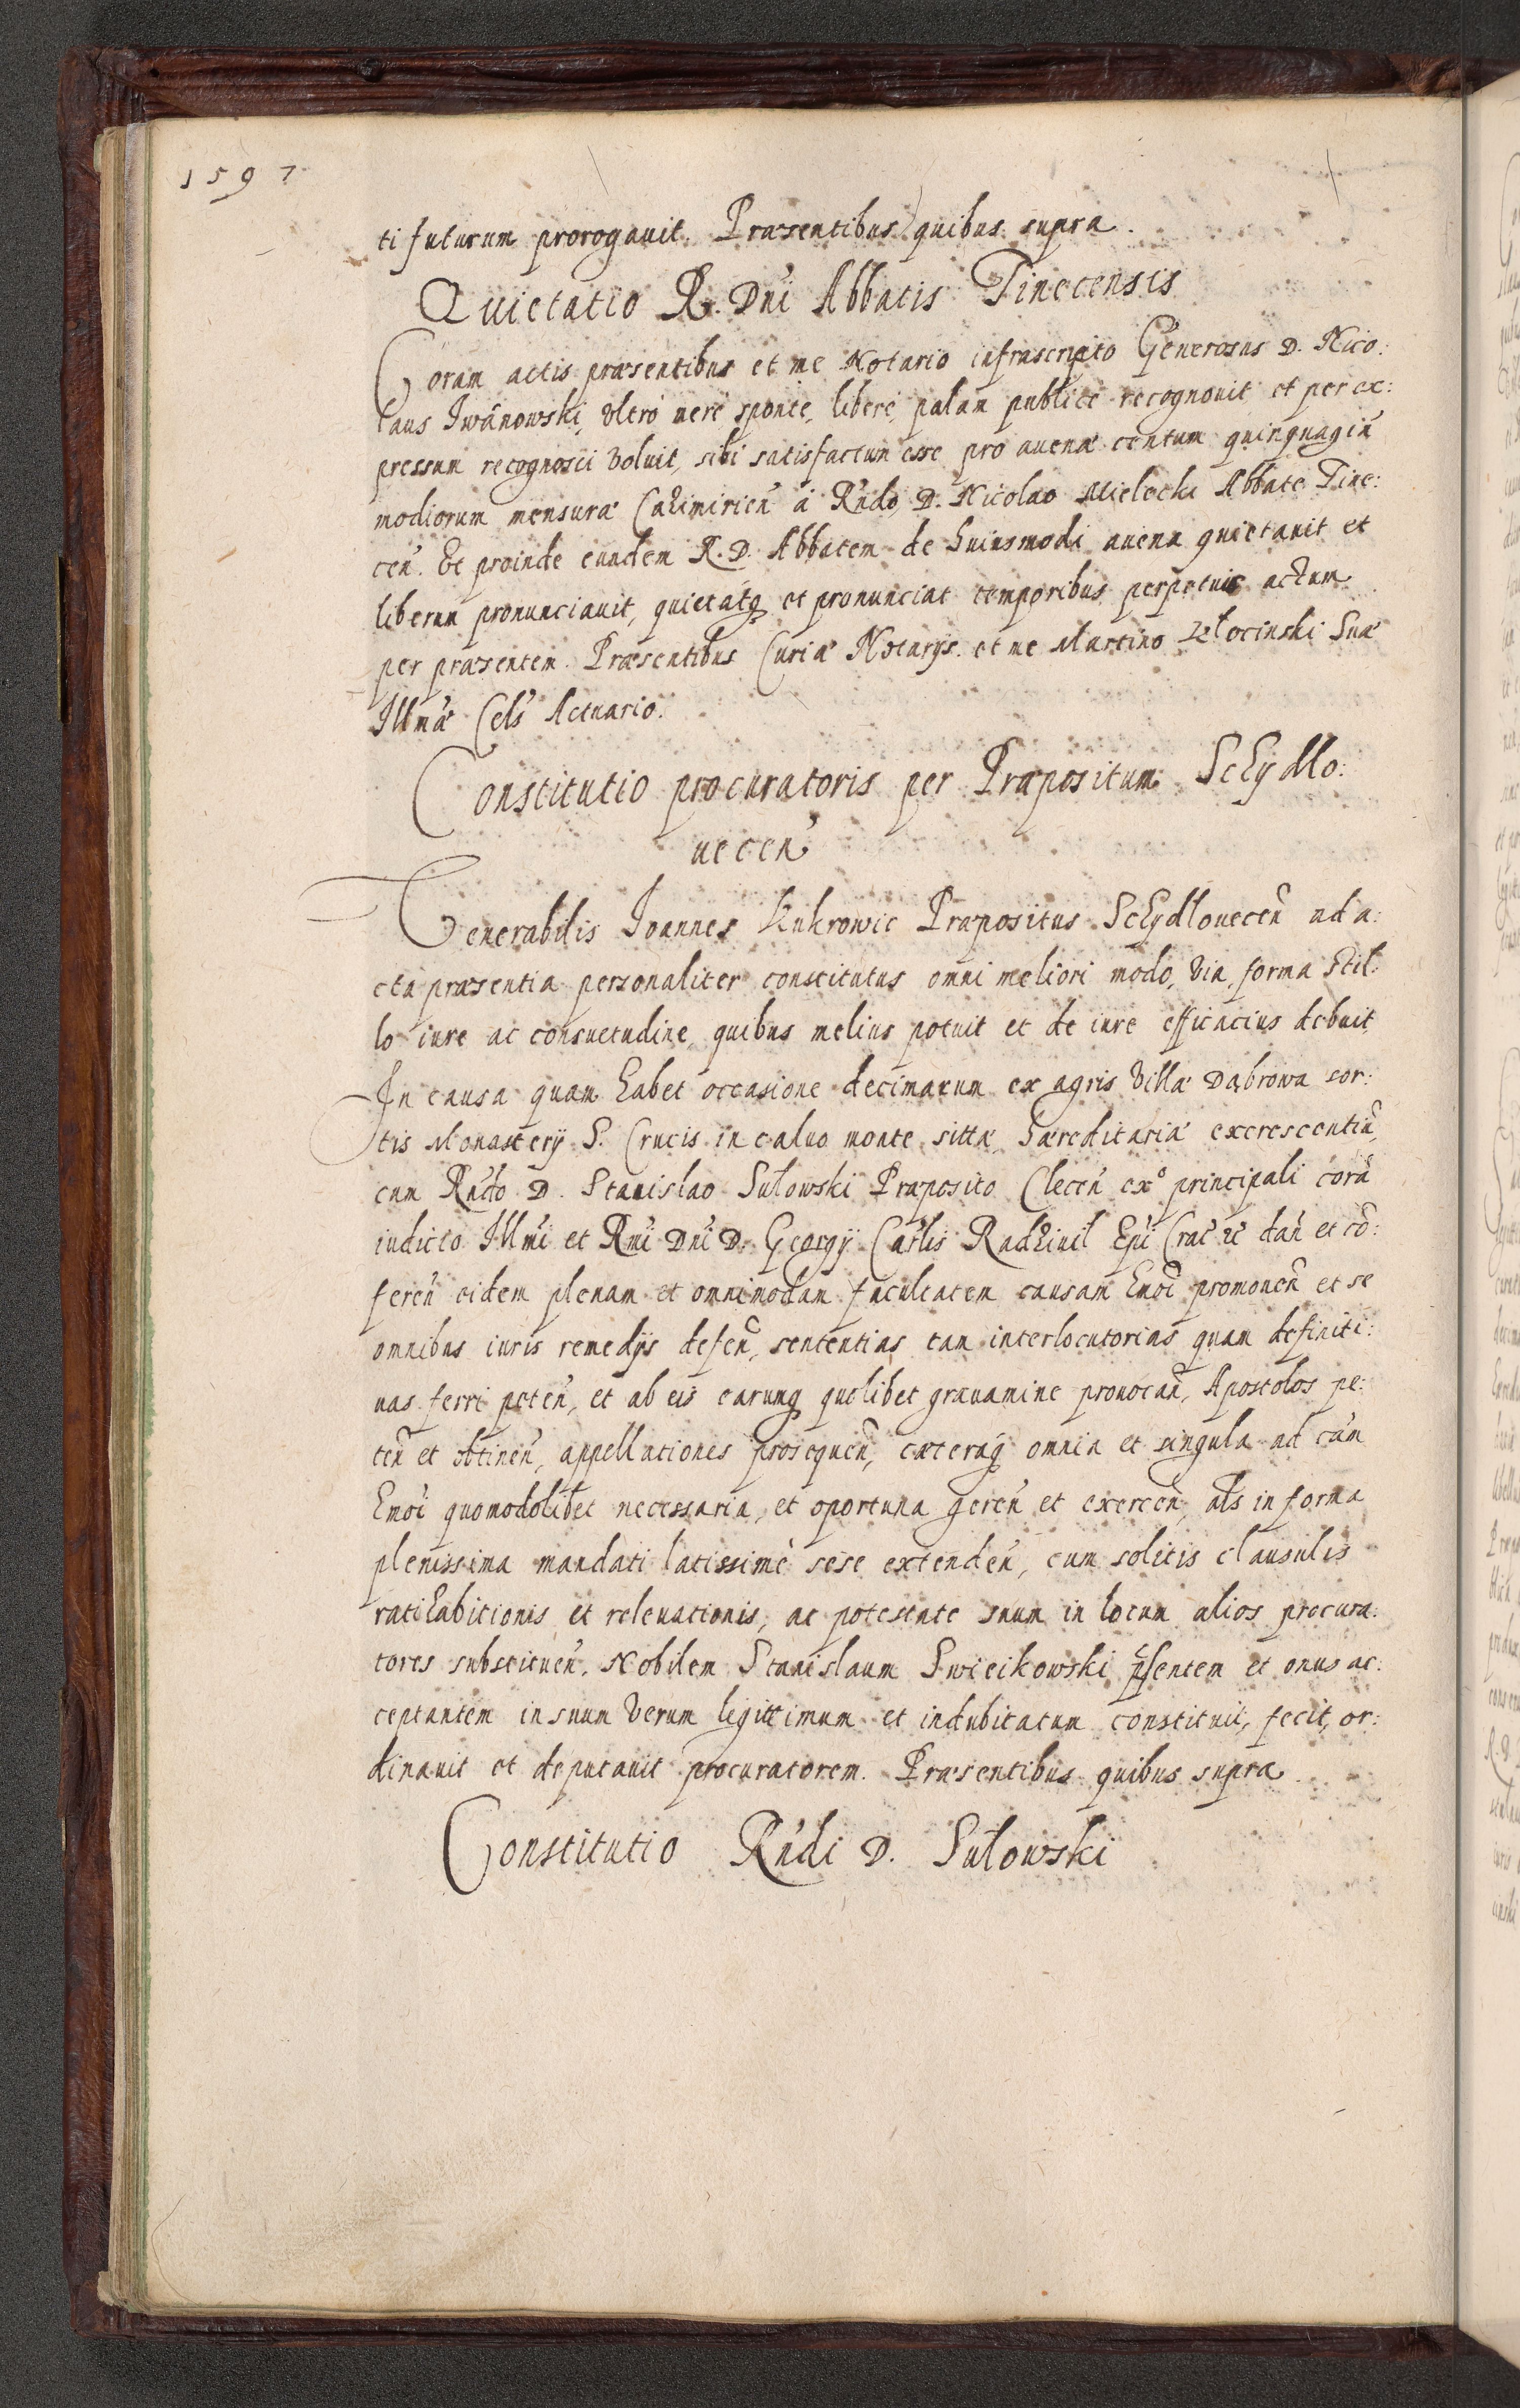 1597
ti futurum prorogauit. Præsentibus quibus supra.
Quietatio R. Dńi Abbatis Tinecensis
Coram actis præsentibus et me Notario infrascripto Generosus D. Nico:
laus Iwanowski, vltro uere sponte, libere, palam publice recognouit et per ex:
pressum recognosci voluit, sibi satisfactum esse pro auena centum quinquagiń
modiorum mensuræ Cazimirień á Rńdo D. Nicolao Mielecki Abbate Tine:
ceń. Et proinde eundem R. D. Abbatem de huiusmodi auena quietauit et
liberum pronunciauit, quietatq et pronunciat temporibus perpetuis actum
per præsentem. Præsentibus Curiæ Notarijs. et me Martino Włocinski Suæ
Illmæ Cels Actuario.
Constitutio procuratoris per Præpositum Schydlo:
ueceń
Venerabilis Ioannes Kukrowic Præpositus Schydloueceń ad a:
cta præsentia personaliter constitutus omni meliori modo, via, forma stil:
lo iure ac consuetudine, quibus melius potuit et de iure efficacius debuit
In causa quam habet occasione decimarum ex agris villæ Dąbrowa sor:
tis Monasterij S. Crucis in caluo monte sittæ hæreditariæ excrescentiń,
cum Rńdo D. Stanislao Sułowski Præposito Cleceń exº principali corã
iudicio Illmi et Rmi Dńi D. Georgij Carlis Radziuil Epi Crac zc dań et cõ:
fereń eidem plenam et omnimodam facultatem causam hmoi promoueń et se
omnibus iuris remedijs defeń, sententias tam interlocutorias quam definiti:
uas ferri peteń, et ab eis earumq quolibet grauamine prouocań, Apostolos pe:
teń et obtineń, appellationes prosequeń, cæteraq omnia et singula ad cam
hmoi quomodolibet necessaria, et oportuna gereń et exerceń, als in forma
plenissima mandati latissime sese extendeń, cum solitis clausulis
ratihabitionis et releuationis, ac potestate suum in locum alios procura:
tores substitueń. Nobilem Stanislaum Swieikowski p̃sentem et onus ac:
ceptantem in suum verum legittimum et indubitatum constituit, fecit, or:
dinauit et deputauit procuratorem. Præsentibus quibus supra.
Constitutio Rńdi D. Sułowski